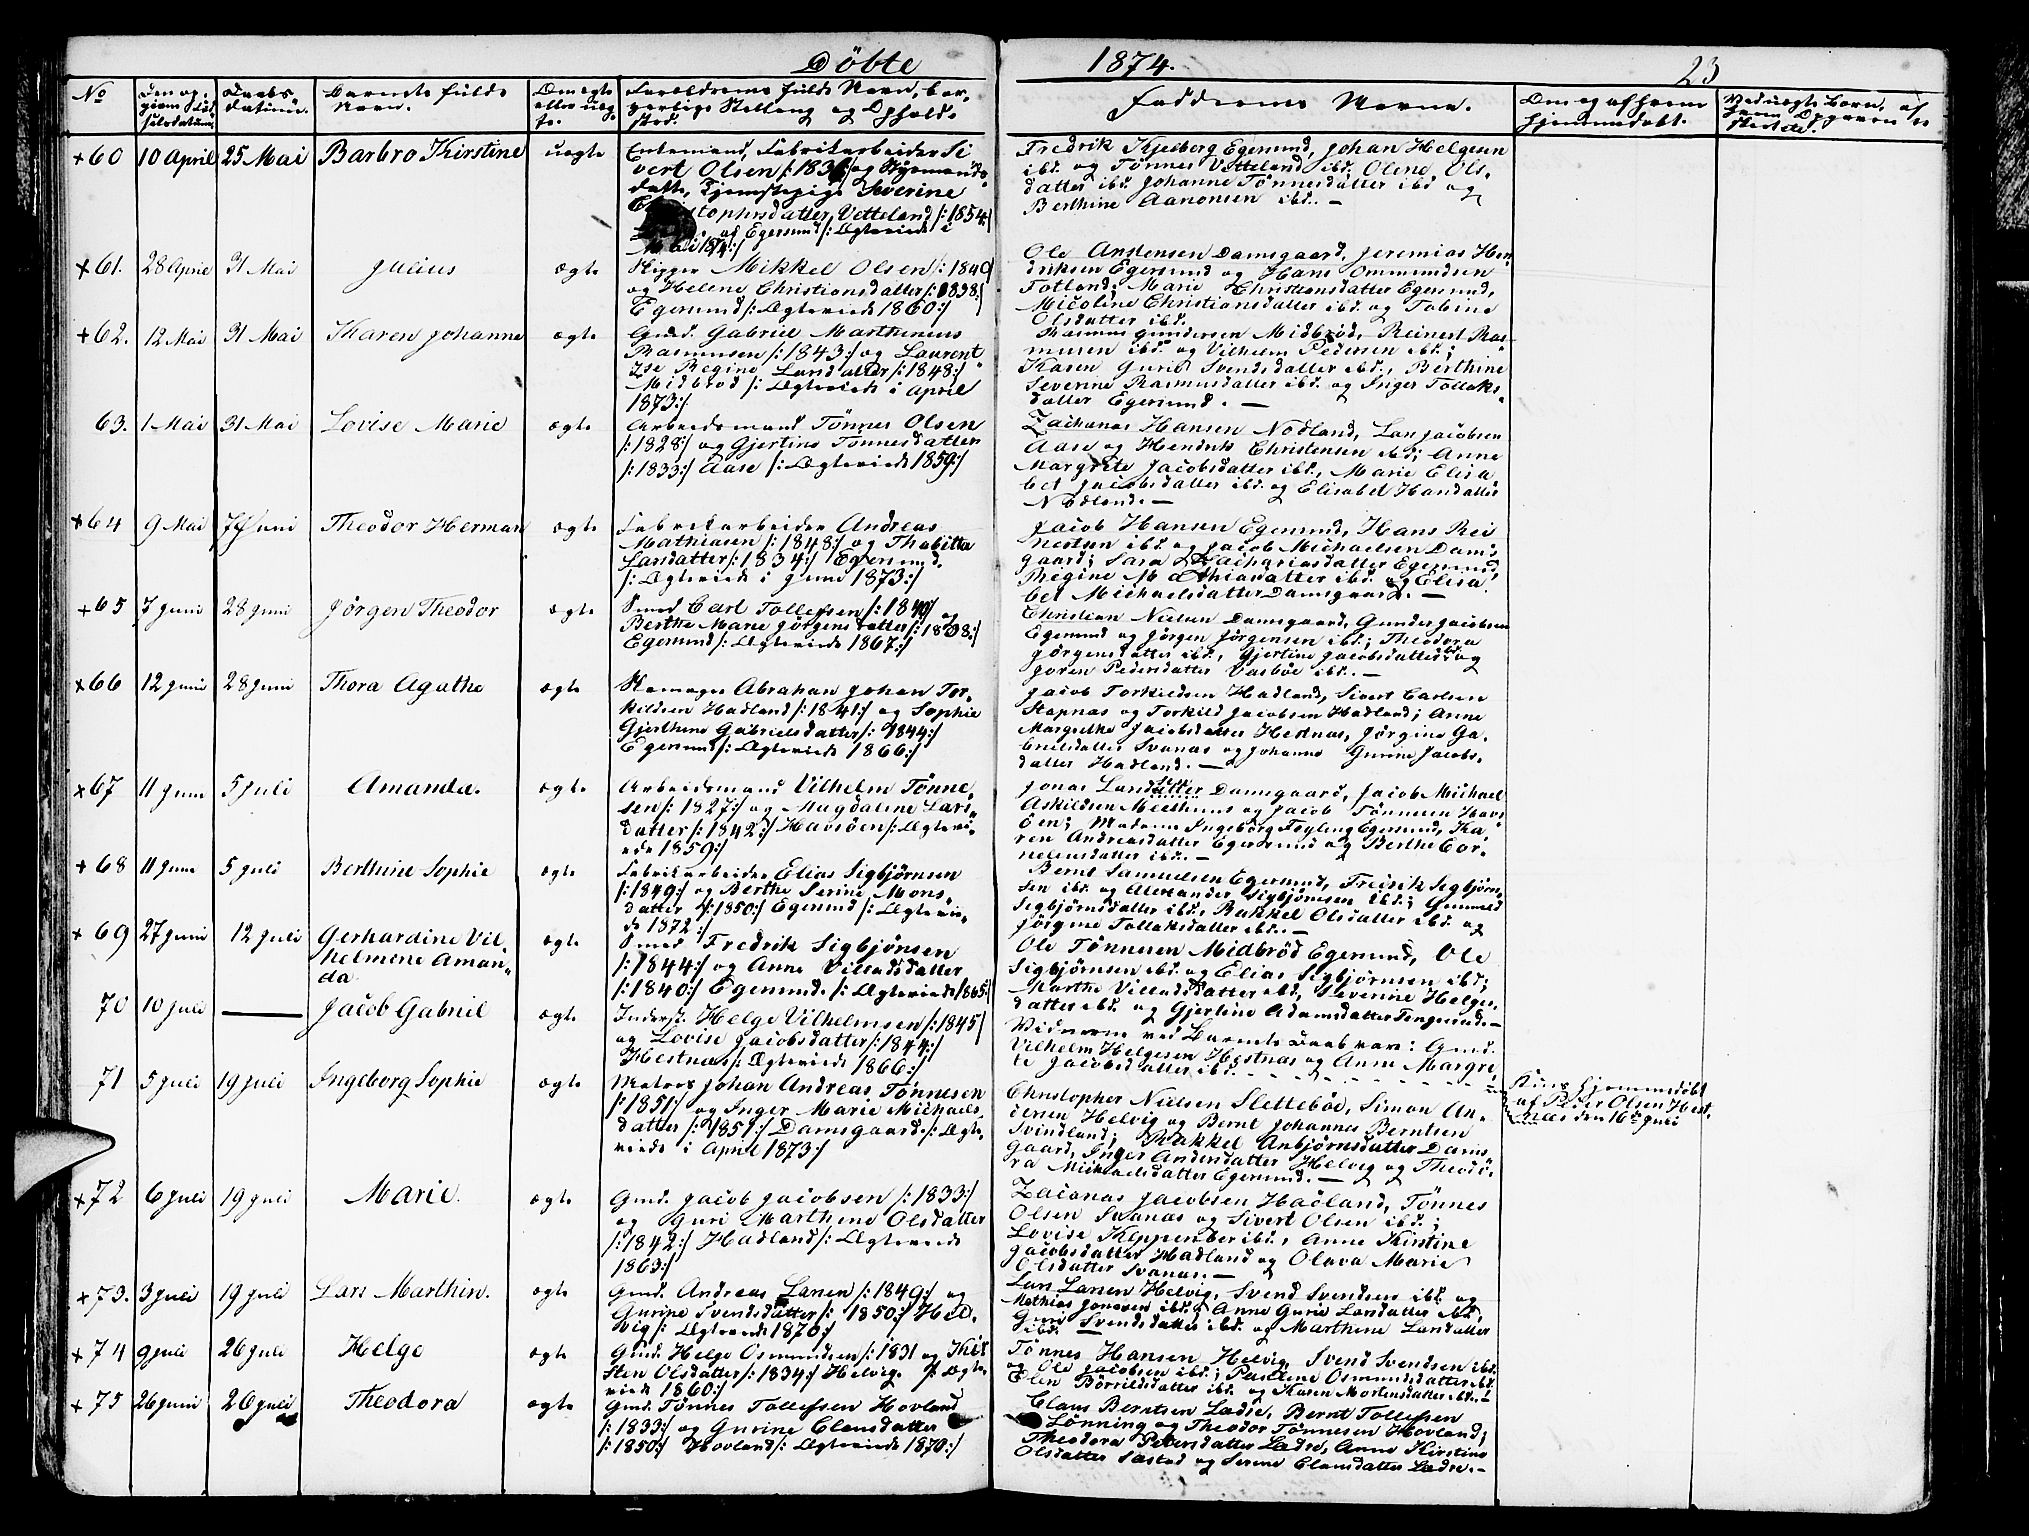 Døbte
1874.
23
No
Den opgivne Fødselsdatum
Daabsdatum.
Barnets fulde Navn.
Om ægte eller uægte.
Forældrenes fulde Navn, borgerlige Stilling og Opholdssted.
Faddernes Navne.
Om og af hvem hjemmedøbt.
Ved uægte Børn, af hvem Opgaven er skeet etc.
+60 10 April 25 Mai Barbro Kirstine uægte
Enkemand, Fabrikarbeider Si
vert Olsen /:1836/ og
datter, Tjenestepige Severine
stophersdatter Vetteland /:1854:/
af Egersund /: Ægteviede i
Fredrik Kjelborg Egersund, Johan Helgesen
ibd. og Tønnes Vetteland ibd. Olene Ols-
datter ibd. Johanne Tønnesdatter ibd og
Berthine Aanonsen ibd. —
+61. 28 April 31 Mai Julius ægte
Skipper Mikkel Olsen /:1840/
og Helene Christiansdatter /:1838:/
Egersund /: Ægteviede 1860:/
Ole Anstensen Damsgaard, Jeremias Hen
driksen Egersund og Hans Ommundsen
Totland; Marie Christensdatter Egersund,
Micoline Christiansdatter ibd. og Tobine
Olsdatter ibd.
+62. 12 Mai 31 Mai Karen Johanne ægte
Gmd. Gabriel Marthinius
Rasmussen /:1843:/ og Laurent
ze Regine Larsdatter /:1848:/
Midbrød /: Ægteviede i April
1873:/
Rasmus Gundersen Midbrød, Reinert Ras-
musen ibd. og Vilhelm Pedersen ibd.;
Karen Gurie Svendsdatter ibd., Berthine
Severine Rasmusdatter ibd. og Inger Tollaks-
datter Egersund. —
63. 1 Mai 31 Mai Lovise Marie ægte
Arbeidsmand Tønnes Olsen
/:1828:/ og Gjertine Tønnesdatter
/:1833:/ Aase /: Ægteviede 1859:/
Zacharias Hansen Nodland, Lars Jacobsen
Aase og Hendrik Christensen ibd; Anne
Margrete Jacobsdatter ibd., Marie Elisa
bet Jacobsdatter ibd. og Elisabet Hansdatter
Nodland. —
+64 9 Mai 7 Juni Theodor Herman ægte
Fabrikarbeider Andreas
Mathiasen /:1848:/ og Thabitta
Larsdatter /:1834:/ Egersund.
/: Ægteviede i Juni 1873:/
Jacob Hansen Egersund, Hans Rei
nertsen ibd. og Jacob Michaelsen Dams-
gaard; Sara Zachariasdatter Egersund,
Regine Mathiasdatter ibd. og Elisa
bet Michaelsdatter Damsgaard. —
+65 7 Juni 28 Juni Jörgen Theodor ægte
Smed Carl Tollefsen /:1840/ og
Berthe Marie Jörgensdatter /:1838:/
Egersund /: Ægteviede 1867:/
Christian Nielsen Damsgaard, Gunder Jacobsen
Egersund og Jörgen Jörgensen ibd.; Theodora
Jörgensdatter ibd., Gjertine Jacobsdatter ibd. og
Joren Pedersdatter Vasböe ibd. —
+66 12 Juni 28 Juni Thora Agathe ægte
Skomager Abraham Johan Tor-
kildsen Hadland /:1841:/ og Sophie
Gjerthine Gabrielsdatter /:1844:/
Egersund /: Ægteviede 1866:/
Jacob Torkildsen Hadland, Sivert Carlsen
Stapnas og Torkild Jacobsen Hadland; Anne
Margrethe Jacobsdatter Hestnæs, Jörgine Ga-
brielsdatter Svanæs og Johanne Gurine Jacobs-
datter Hadland. —
+67 11 Juni 5 Juli Amanda. ægte
Arbeidsmand Vilhelm Tønne-
sen /:1827:/ og Magdaline Lars-
datter /:1842:/ Havsöen /: Ægtevi-
ede 1859:/
Jonas Larsdatter sen Damsgaard, Jacob Michael
Askildsen og Jacob Tönnesen Havs
öen; Madame Ingeborg Foyling Egersund, Ka
ren Andreasdatter Egersund og Berthe Cor-
neliusdatter ibd. —
+68 11 Juni 5 Juli Berthine Sophie ægte
Fabrikarbeider Elias Sigbjørnsen
/:1849:/ og Berthe Serine Mons-
datter /:1850:/ Egersund /: Ægtevie-
de 1872:/
Bernt Samuelsen Egersund, Fredrik Sigbjörn
sen ibd. og Alexander Sigbjörnsen ibd.; Gunnild
Sigbjörnsdatter ibd., Rakkel Olsdatter ibd og
Jörgine Tollaksdatter ibd. —
+69 27 Juni 12 Juli Gerhardine Vil-
helmine Aman-
da. ægte
Smed Fredrik Sigbjørnsen
/:1844:/ og Anne Villadsdatter
/:1840:/ Egersund. /: Ægteviede 1865:/
Ole Tönnesen Midbröd Egersund, Ole
Sigbjörnsen ibd. og Elias Sigbjörnsen ibd;
Marthe Villadsdatter ibd, Severine Helges-
datter ibd. og Gjertine Adamsdatter Tengesund. —
70 10 Juli — Jacob Gabriel ægte
Inderst. Helge Vilhelmsen /:1845/
og Lovise Jacobsdatter /:1844:/
Hestnæs /: Ægteviede 1866:/
Vidnerne ved Barnets Daab vare: Gmd.
Vilhelm Helgesen Hestnæs og Anne Margre
te Jacobsdatter ibd.
Kun hjemmedöbt
af Peder Olsen Hest-
næs den 16de Juli
71 5 Juli 19 Juli Ingeborg Sophie ægte
Matros Johan Andreas Tönnesen
/:1851:/ og Inger Marie Michaels
datter /:1851:/ Damsgaard. /: Ægte-
viede i April 1873:/
Christopher Nielsen Slettebøe, Simon An-
dersen Helvig og Bernt Johannes Berntsen
Svindland; Rakkel Anbjörnsdatter Dams-
gaard, Inger Andersdatter Helvig og Theodo-
ra Michaelsdatter Egersund. —
+72 6 Juli 19 Juli Marie. ægte
Gmd. Jacob Jacobsen /:1833:/
og Guri Marthine Olsdatter
/:1842:/ Hadland /: Ægteviede
1863:/
Zacarias Jacobsen Hadland, Tönnes
Olsen Svanæs og Sivert Olsen ibd.;
Lovise Kleppenber ibd., Anne Kirstine
Jacobsdatter Hadland og Olava Marie
Olsdatter Svanæs. —
+73. 3 Juli 19 Juli Lars Marthin. ægte
Gmd. Andreas Larsen /:1849:/ og
Gurine Svendsdatter /:1850:/ Hel-
vig /: Ægteviede 1870:/
Lars Larsen Helvig, Svend Svendsen ibd. og
Mathias Jonesen ibd.; Anne Gurie Larsdatter ibd,
Guri Svendsdatter ibd. og Marthine Larsdatter
ibd. —
+74 9 Juli 26 Juli Helge ægte
Gmd. Helge Osmundsen /:1831 og Kir
sten Olsdatter /:1834:/ Helvig. /: Ægte-
viede 1860:/
Tönnes Hansen Helvig, Svend Svendsen ibd.
og Ole Jacobsen ibd.; Pauline Osmundsdatter ibd
Elen Börrildsdatter ibd. og Karen Mortensdatter ibd. —
+75 26 Juni 26 Juli Theodora ægte
Gmd. Tönnes Tollefsen Hovland
/:1833:/ og Gurine Clausdatter
/:1850:/ Hovland /: Ægteviede 1870:/
Claus Berntsen Lædre, Bernt Tollefsen
Lönning og Theodor Tönnesen Hovland;
Theodora Pedersdatter Lædre, Anne Kirstine
Olsdatter Sæstad og Serine Clausdatter Lædre. —